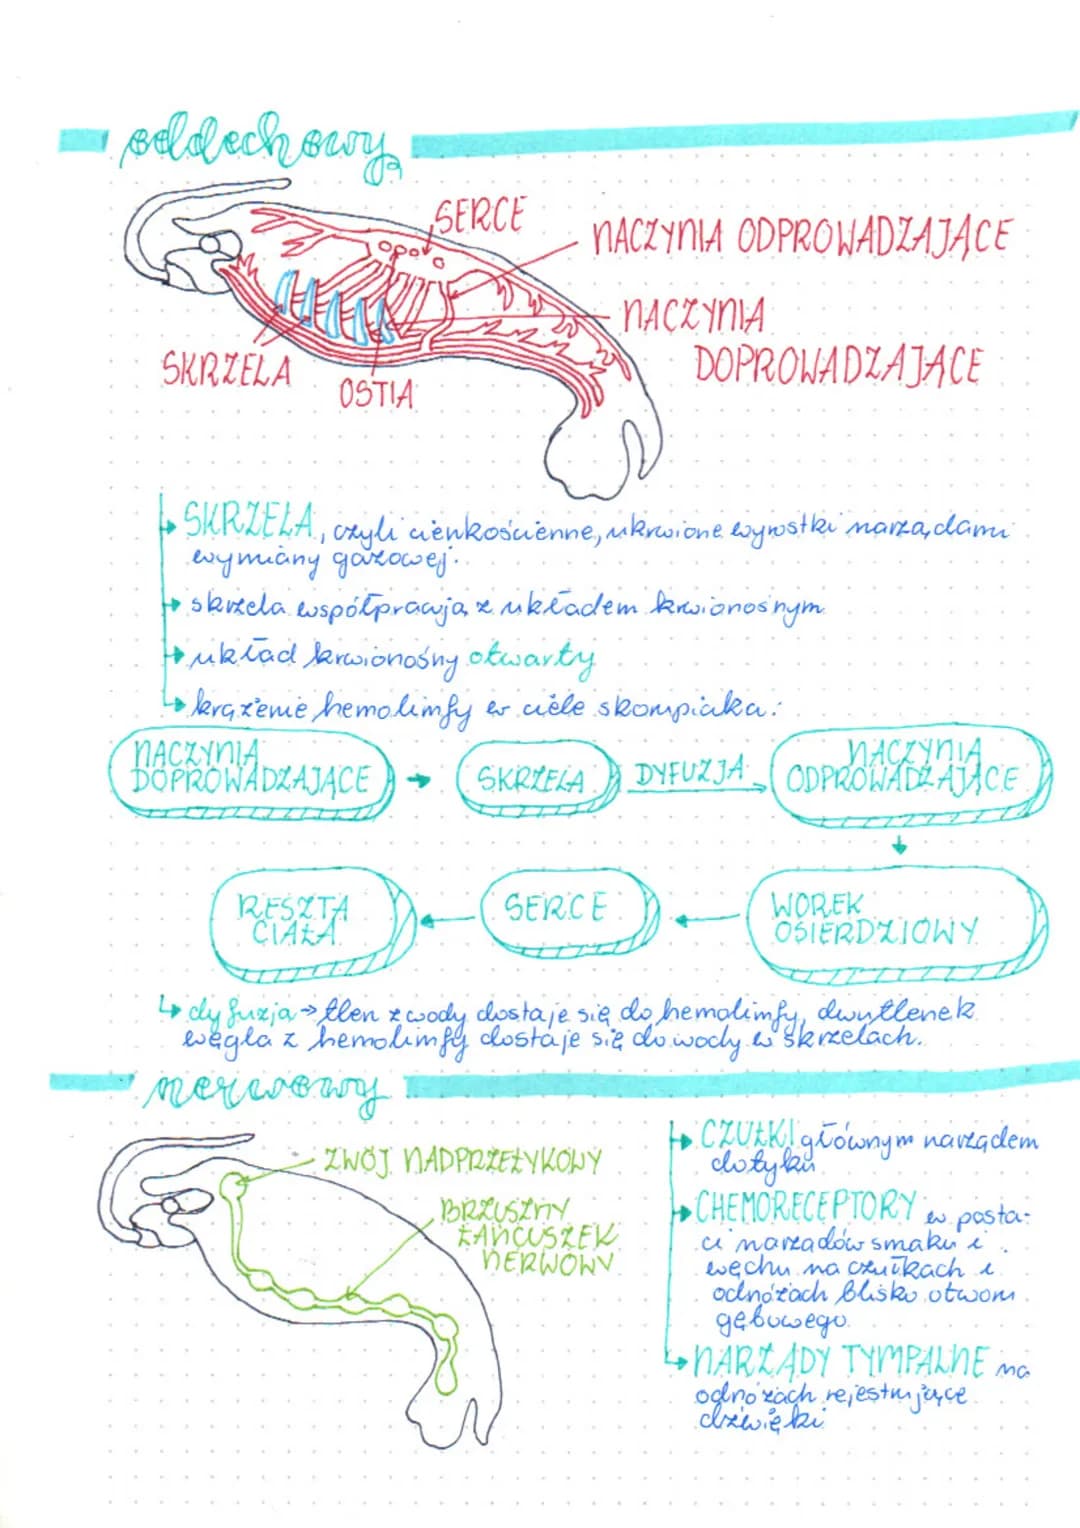 oddechowy
SERCE
NACZYNIA ODPROWADZAJĄCE
NACZYNIA
DOPROWADZAJĄCE
SKRZELA
OSTIA
SKRZELA, czyli cienkościenne, ukrwione wyrostki narządami
wymiany gazowej.
skrzela współpracują z układem krwionośnym
układ krwionośny otwarty
krążenie hemolimfy w ciele skorupiaka:
NACZYNIA
DOPROWADZAJĄCE
SKRZELA
DYFUZJA
NACZYNIA
ODPROWADZAJĄCE
RESZTA
CIAŁA
SERCE
WOREK
OSIERDZIOWY
dyfuzja → tlen z wody dostaje się do hemolimfy, dwutlenek
węgla z hemolimfy dostaje się do wody w skrzelach.
nerwowy
ZWÓJ NADPRZEŁYKOWY
BRZUSZNY
ŁAŃCUSZEK
NERWOWY
CZUŁKI głównym narządem
dotyku
CHEMORECEPTORY w posta-
ci narządów smaku i
węchu na czułkach i
odnóżach blisko otworu
gębowego
NARZĄDY TYMPALNE na
odnóżach rejestrujące
dźwięki